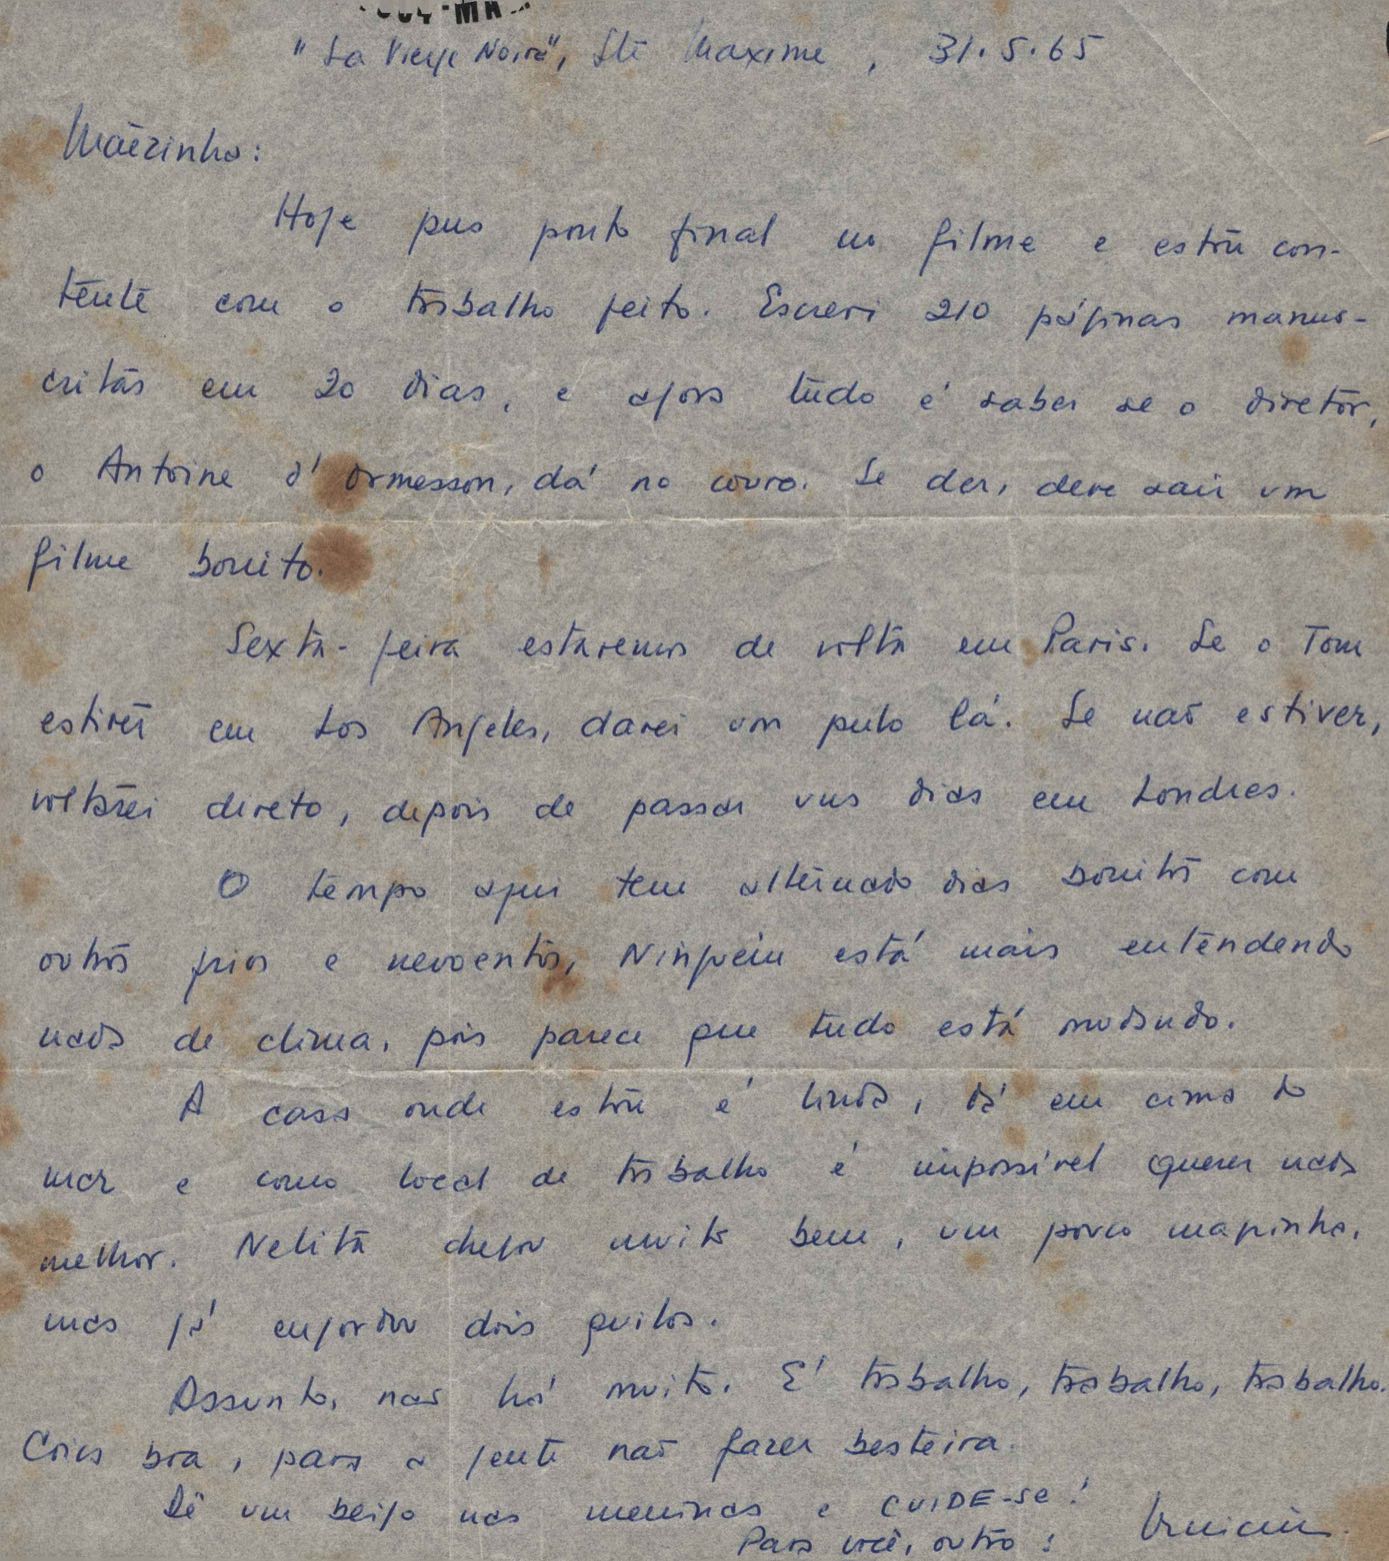 "La Vierge Noire", Ste Maxime, 31.5.65
Mãezinha:
Hoje pus ponto final no filme e estou con-
tente com o trabalho feito. Escrevi 210 páginas manus-
critas em 20 dias, e agora tudo é saber se o diretor,
o Antoine d'Ormesson, dá no couro. Se der, deve sair um
filme bonito.
Sexta-feira estaremos de volta em Paris. Se o Tom
estiver em Los Angeles, darei um pulo lá. Se não estiver,
voltarei direto, depois de passar uns dias em Londres.
O tempo aqui tem alternado dias bonitos com
outros frios e nevoentos, Ninguém está mais entendendo
nada de clima, pois parece que tudo está mudando.
A casa onde estou é linda, dá em cima do
mar e como local de trabalho é impossível querer nada
melhor. Nelita chegou muito bem, um pouco magrinha,
mas já engordou dois quilos.
Assunto, não há muito. É trabalho, trabalho, trabalho.
Coisa boa, para a gente não fazer besteira.
Dê um beijo nas meninas e CUIDE-se!
Para você, outro:
Vinicius